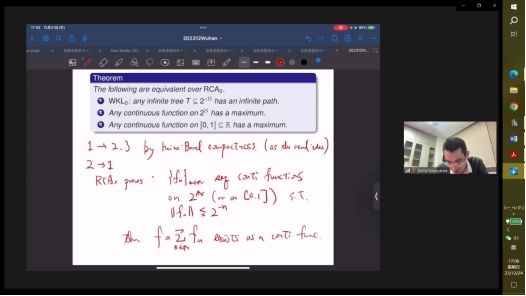 17:05 12月24日周日
86%
202312Wuhan
Theorem
The following are equivalent over RCA₀.
1 WKL₀: any infinite tree T ⊆ 2^{<ℕ} has an infinite path.
2 Any continuous function on 2^ℕ has a maximum.
3 Any continuous function on [0, 1] ⊆ ℝ has a maximum.
1 → 2.3 by Heine-Borel compactness (as the
2 → 1
RCA₀ proves : {fₙ}ₙ∈ℕ seq conti functions
on 2^ℕ (or on [0,1]) s.t.
‖fₙ‖ ≤ 2⁻ⁿ
then f = Σ fₙ exists as a conti func.
n∈ℕ
Keita Yokoyama
17:06
星期日
23/12/24